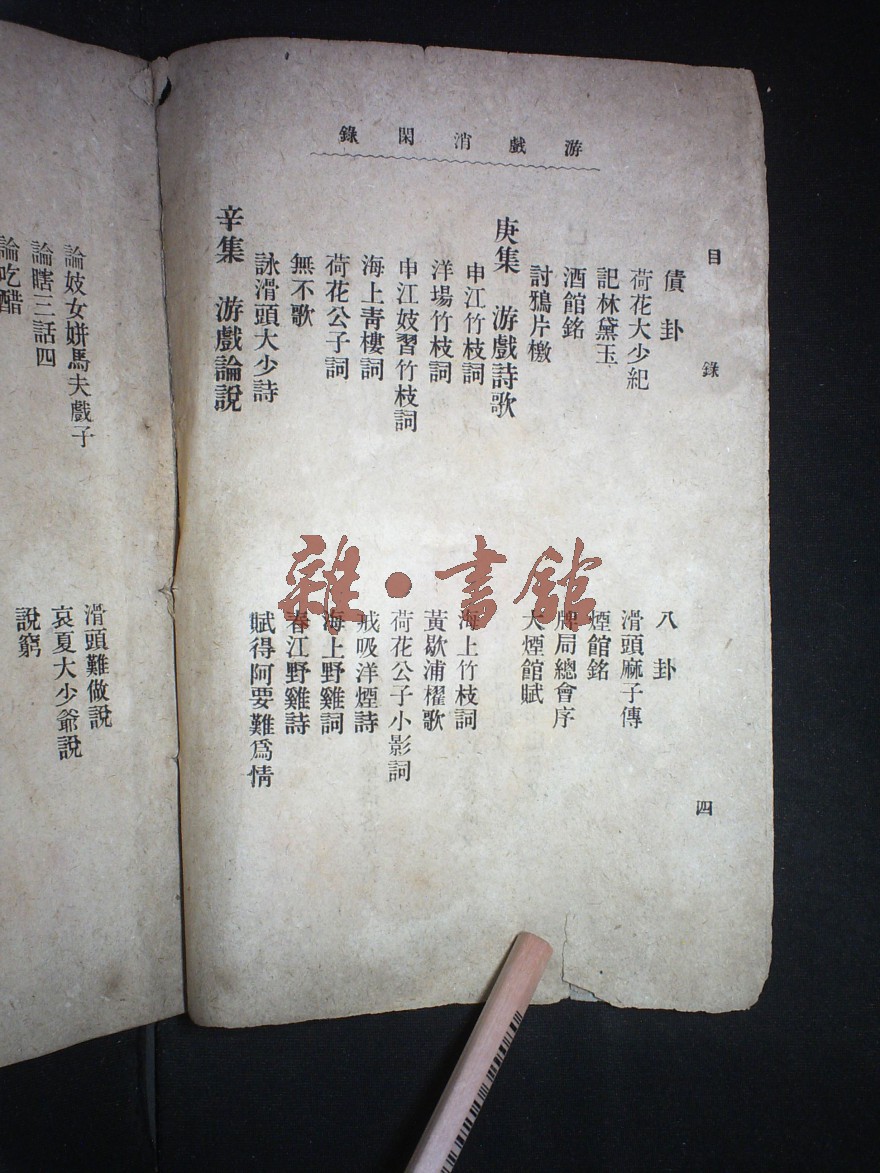 游戲消閑錄
目錄 四
債卦 八卦
荷花大少紀 滑頭麻子傳
記林黛玉 煙館銘
酒館銘 牌局總會序
討鴉片檄 大煙館賦
庚集 游戲詩歌
申江竹枝詞 海上竹枝詞
洋場竹枝詞 黃歇浦櫂歌
申江妓習竹枝詞 荷花公子小影詞
海上靑樓詞 戒吸洋煙詩
荷花公子詞 海上野雞詞
無不歌 春江野雞詩
詠滑頭大少詩 賦得阿要難爲情
辛集 游戲論說
論妓女姘馬夫戲子 滑頭難做說
論瞎三話四 哀夏大少爺說
論吃醋 說窮
雜·書館